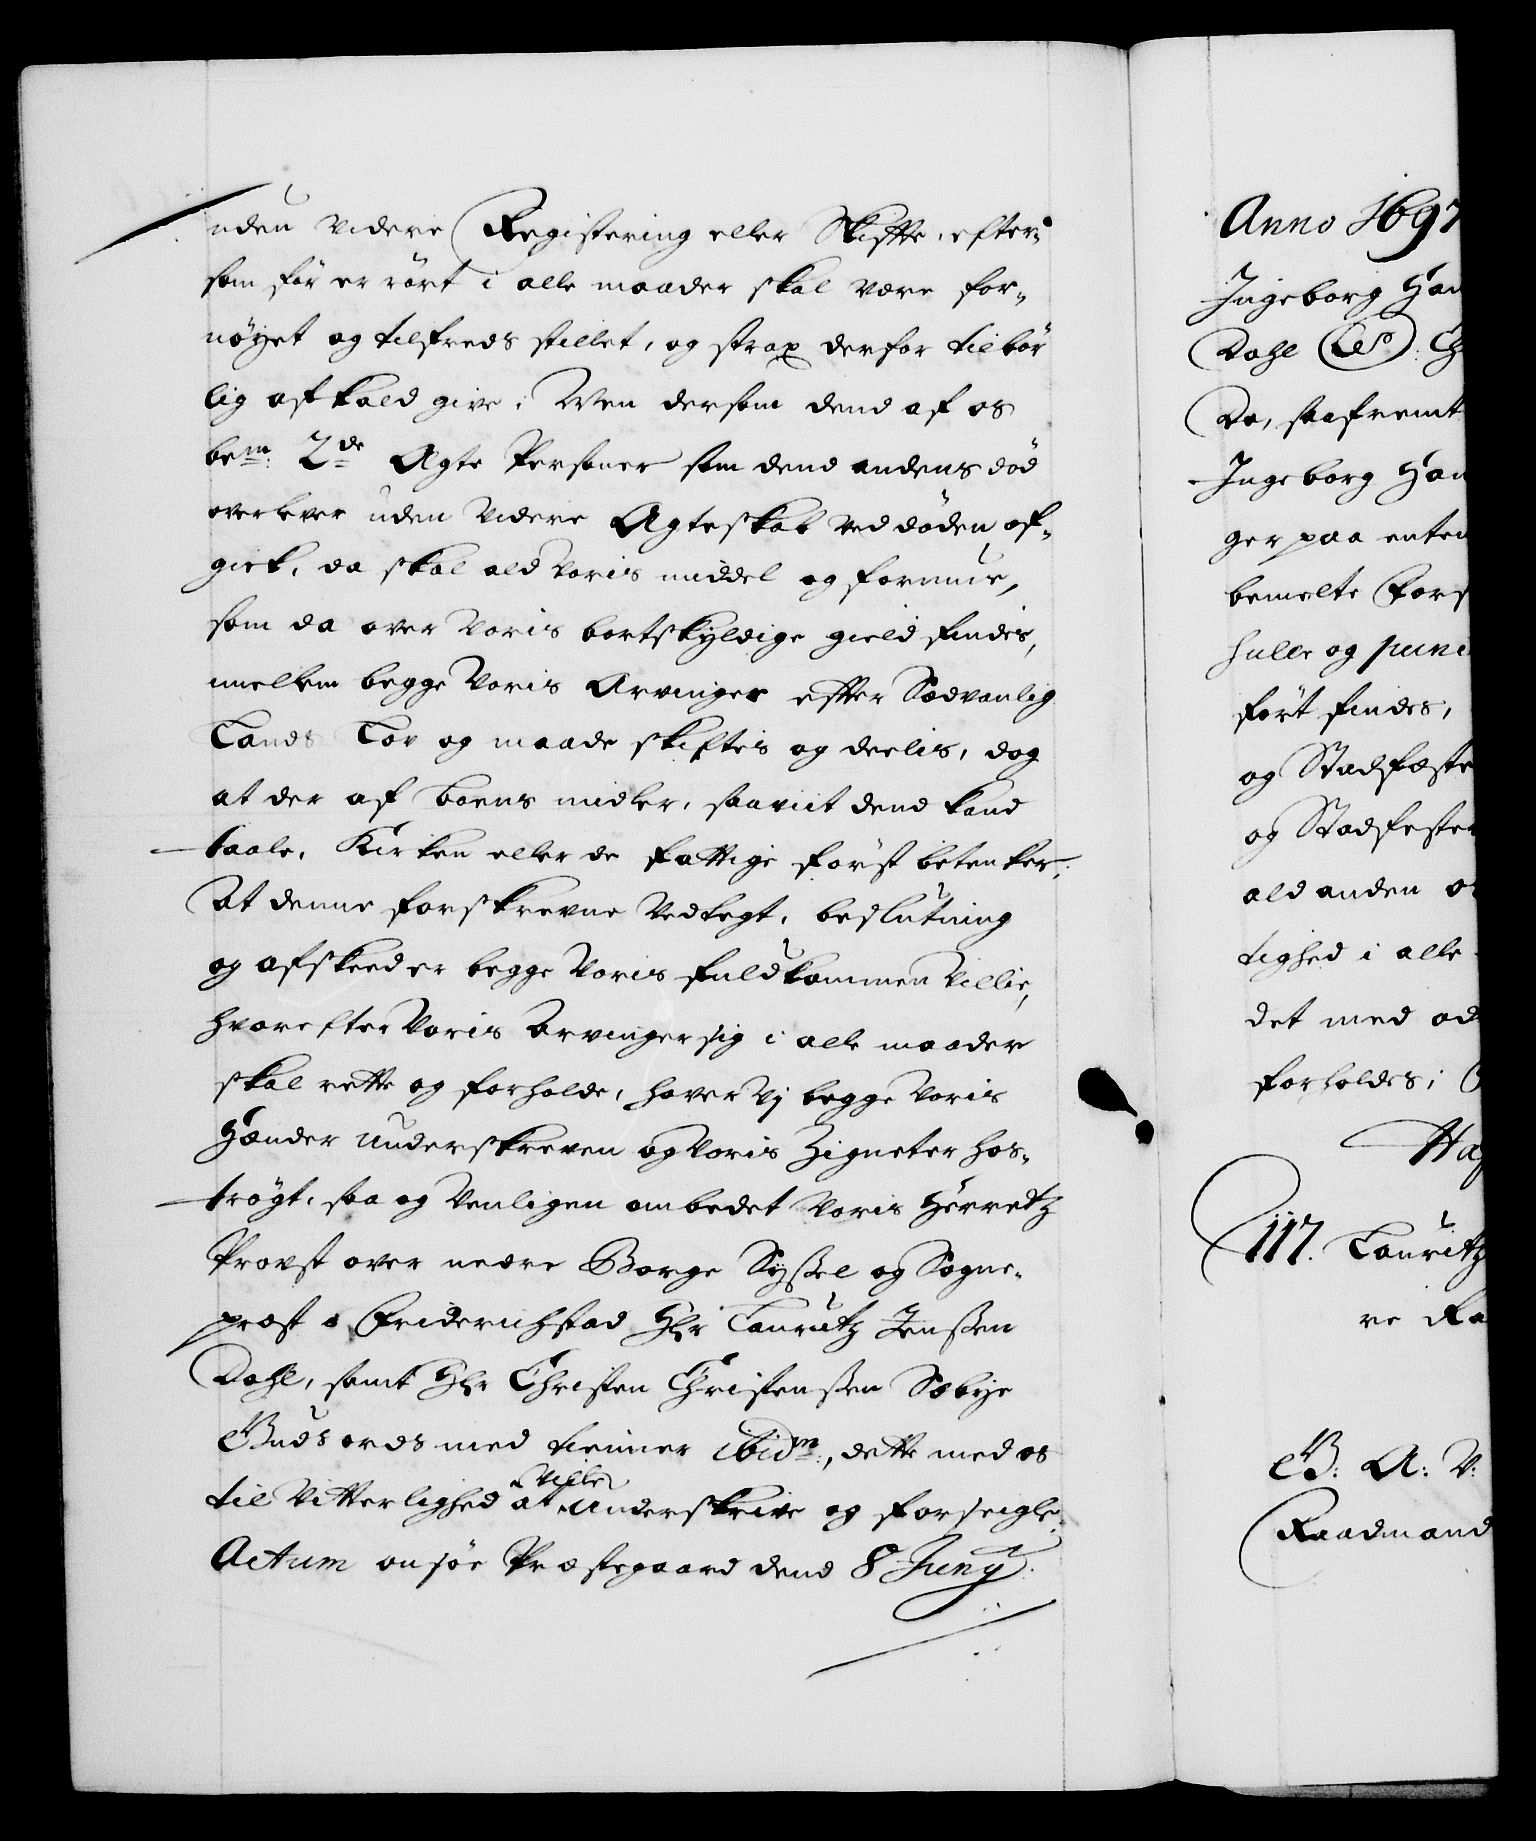 uden videre Registering eller Skiffte, efter¬
som før er rørt i alle maader skal være for¬
nøyet og tilfreds stillet, og strax derfor tilbør
lig afkald give. Men dersom dend af os
bem: 2de Ægte Personer som dend andens død
overlever uden videre Ægteskab ved døden af¬
gick, da skal ald voris middel og formue,
som da over voris bortskyldige gield findes,
imellem begge voris Arvinger effter Sædvanlig
Lands Lov og maade skiftes og deelis, dog
at der af boens midler, saavit dend kand
taale, Kirken eller de fattige først betenker.
At denne forskrevne vedtegt, beslutning
og afskeed er begge voris fuldkommen villie,
hvorefter voris Arvinger sig i alle maader
skal rette og forholde, haver vj begge voris
Hænder underskreven og voris Zigneter hos¬
trøgt, saa og venligen ombedet voris Herretz
Provst over nedre Borge Syssel og Sogne¬
præst i Friderichstad Hr Lauritz Jenssen
Dahl, samt Hr Christen Christenssen Sæbye
Guds ords med tienner ibidm:, dette med os
til vitterlighed at ville underskrive og forseigle.
Actum onsøe Præstegaard dend 8 Juny
Anno 1697
Ingeborg Han
Dahl (LS): Ch
Da, saafremt
Ingeborg Han
ger paa enten
bemelte Fors
hulle og punc
ført findes,
og Stadfæste
og Stadfester
ald anden
tighed i alle
det med
forholdes;
Haf
117. Lauritz
re Ra
G: A: V:
Raadmand